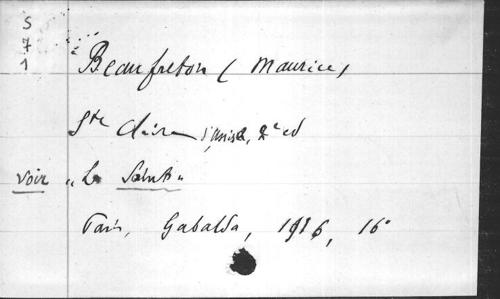 S
7
1
Beaufreton (Maurice)
Ste Claire d'Assise, 2e ed
voir "Les Saints"
Paris, Gabalda, 1916, 16°